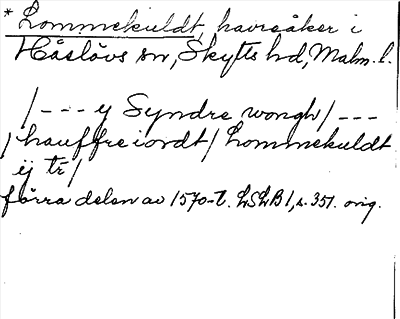 * Lommekuldt, havreåker i
Håslövs sn, Skytts hd, Malm. l.
/--- y Syndre wongh/ ---
/hauffreiordt/ Lommekuldt
ij tr/
förra delen av 1570-t. LSLB I, s. 351. orig.